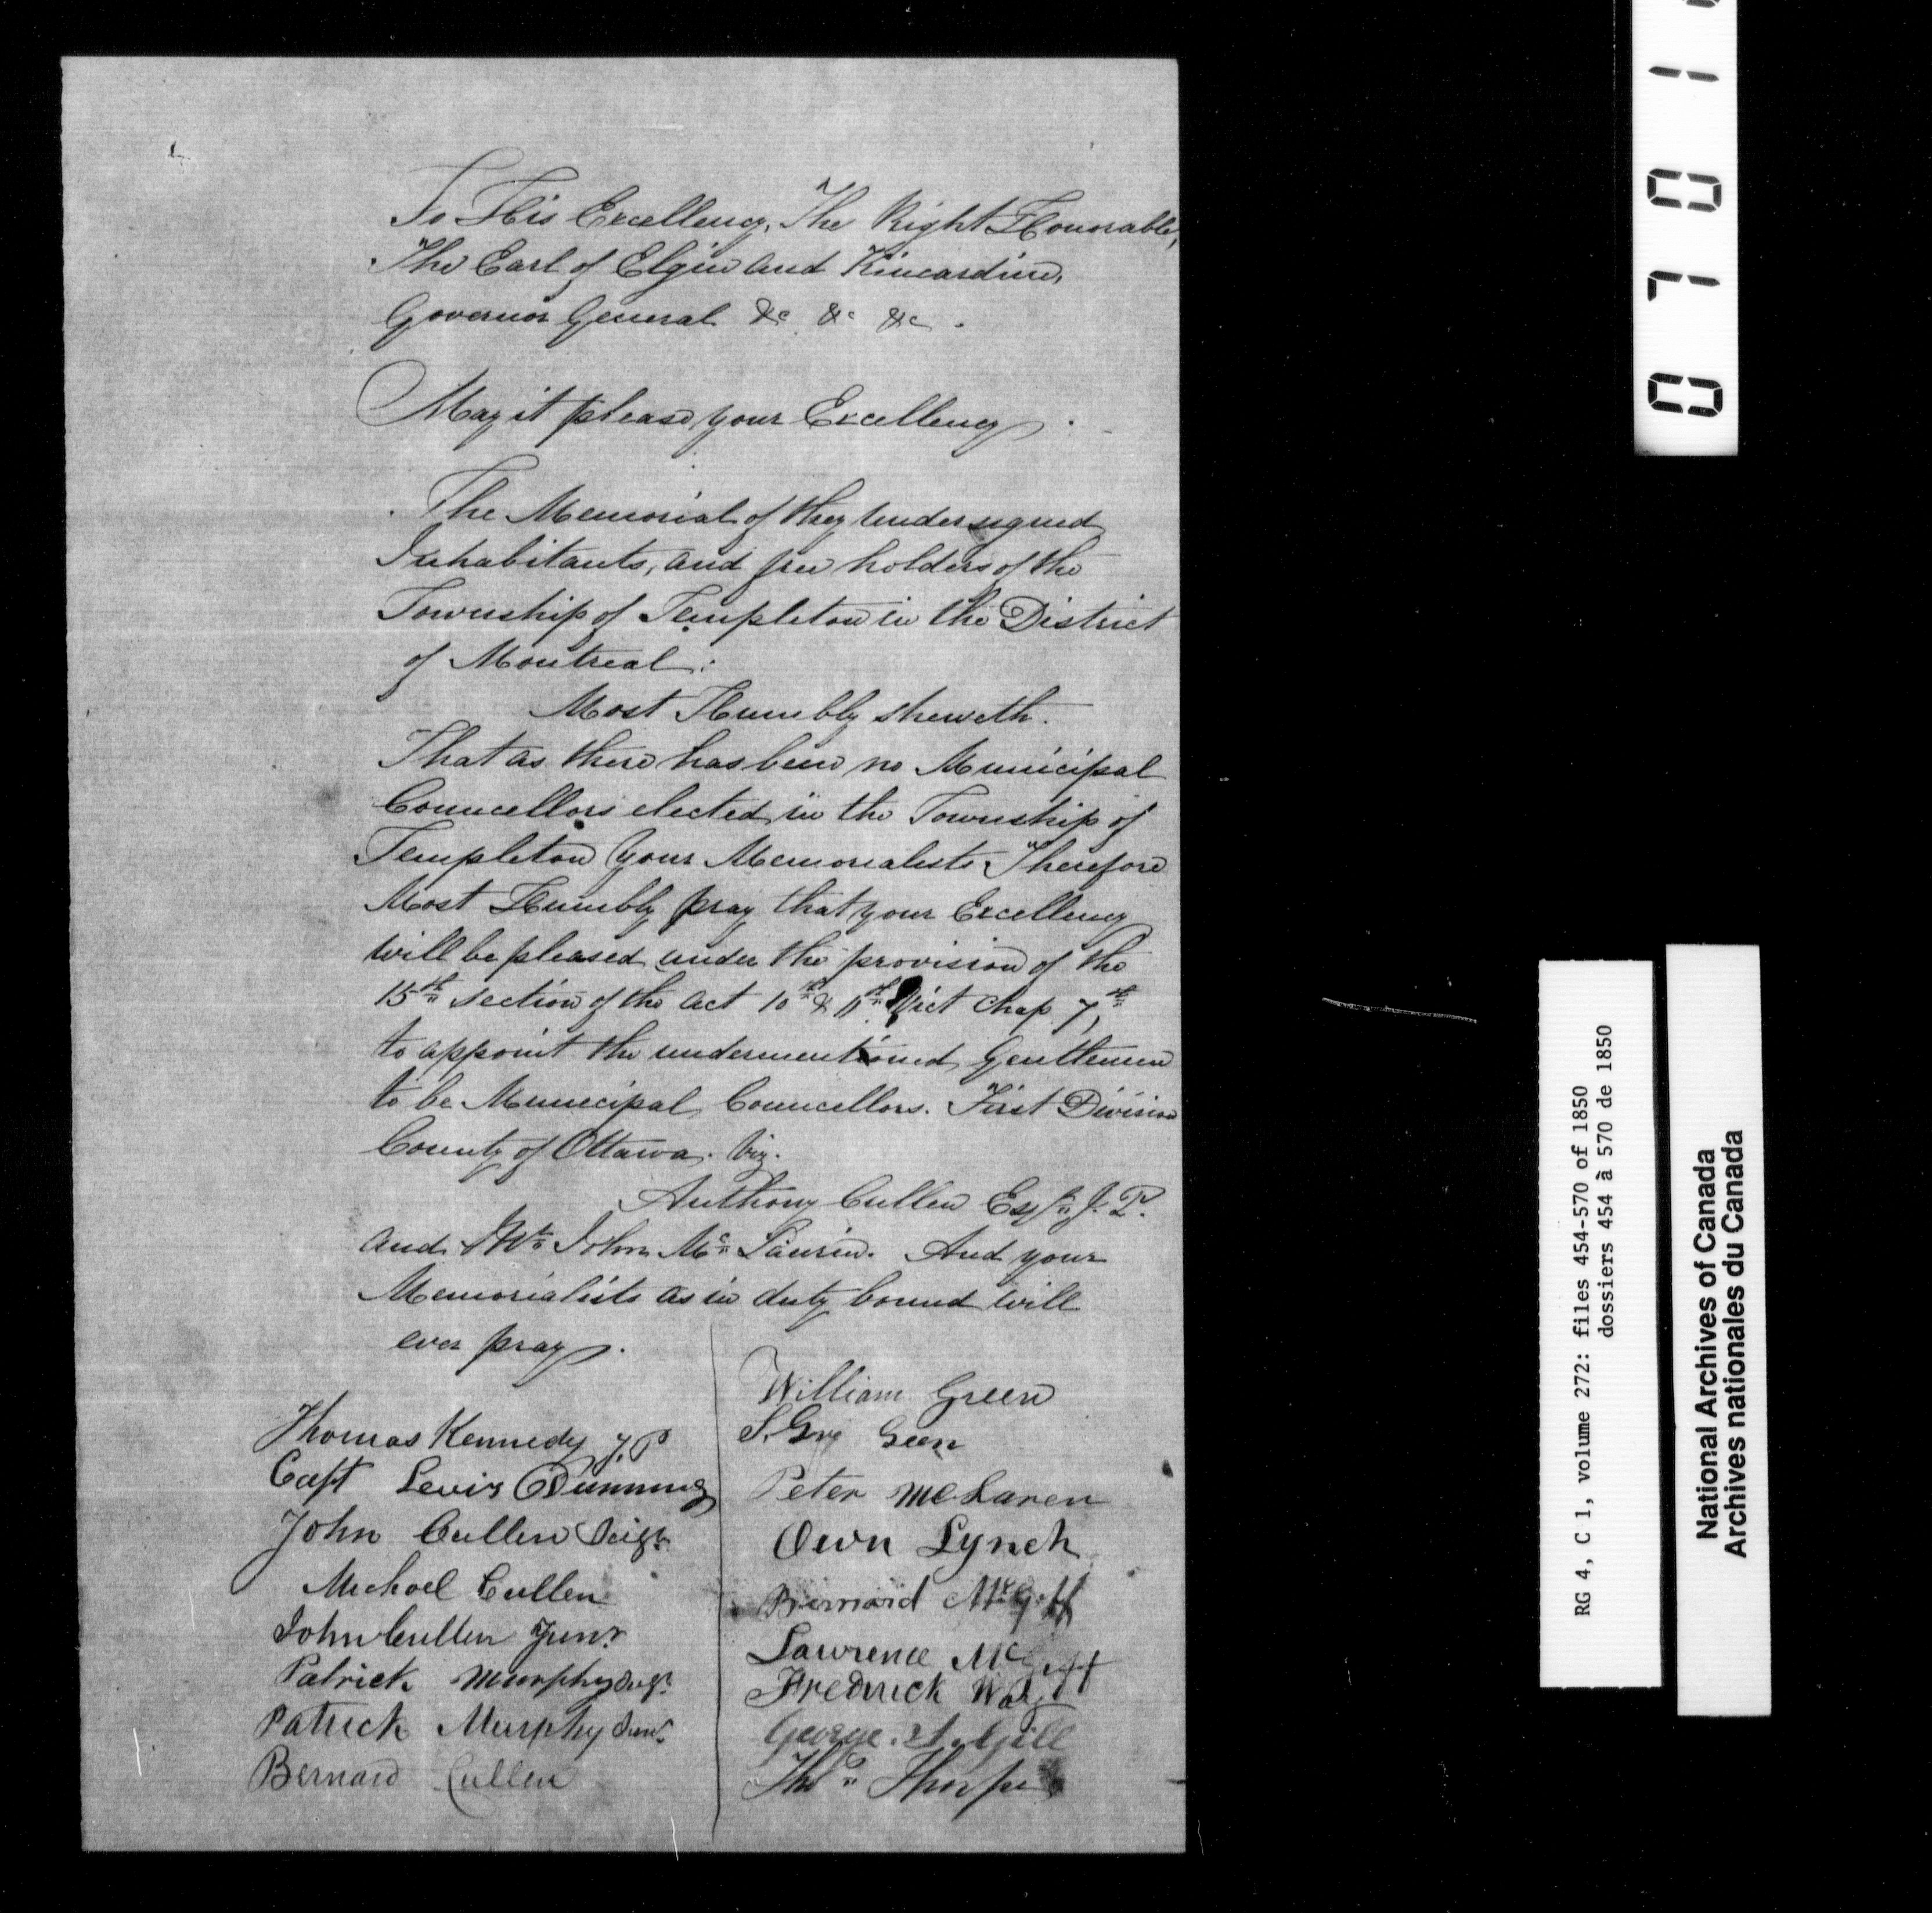 To His Excellency, The Right Honorable,
The Earl of Elgin and Kincardine,
Governor General &c &c &c.
May it please your Excellency.
The Memorial of they undersigned
Inhabitants, and free holders of the
Township of Templeton in the District
of Montreal:
Most Humbly sheweth.
That as there has been no Municipal
Councellors elected in the Township of
Templeton your Memorialists Therefore
Most Humbly pray that your Excellency
will be pleased under the provision of the
15th section of the act 10th & 11th Vict Chap 7th
to appoint the undermentioned Gentlemen
to be Municipal Councellors. First Division
County of Ottawa. Viz.
Anthony Cullen Esqr. J. P.
and Mr. John Mc Laurin. And your
Memorialists as in duty bound will
ever pray.
Thomas Kennedy J.P
Capt Levis Dunning
John Cullen Seigr.
Michael Cullen
John Cullen Junr
Patrick Murphy Seigr.
Patrick Murphy Junr.
Bernard Cullen
William Green
Green
Peter McLaren
Own Lynch
Bernard
Lawrence
Fredrick
George. Gill
Thos. Thorpe
07010
RG 4, C 1, volume 272: files 454-570 of 1850
dossiers 454 à 570 de 1850
National Archives of Canada
Archives nationales du Canada